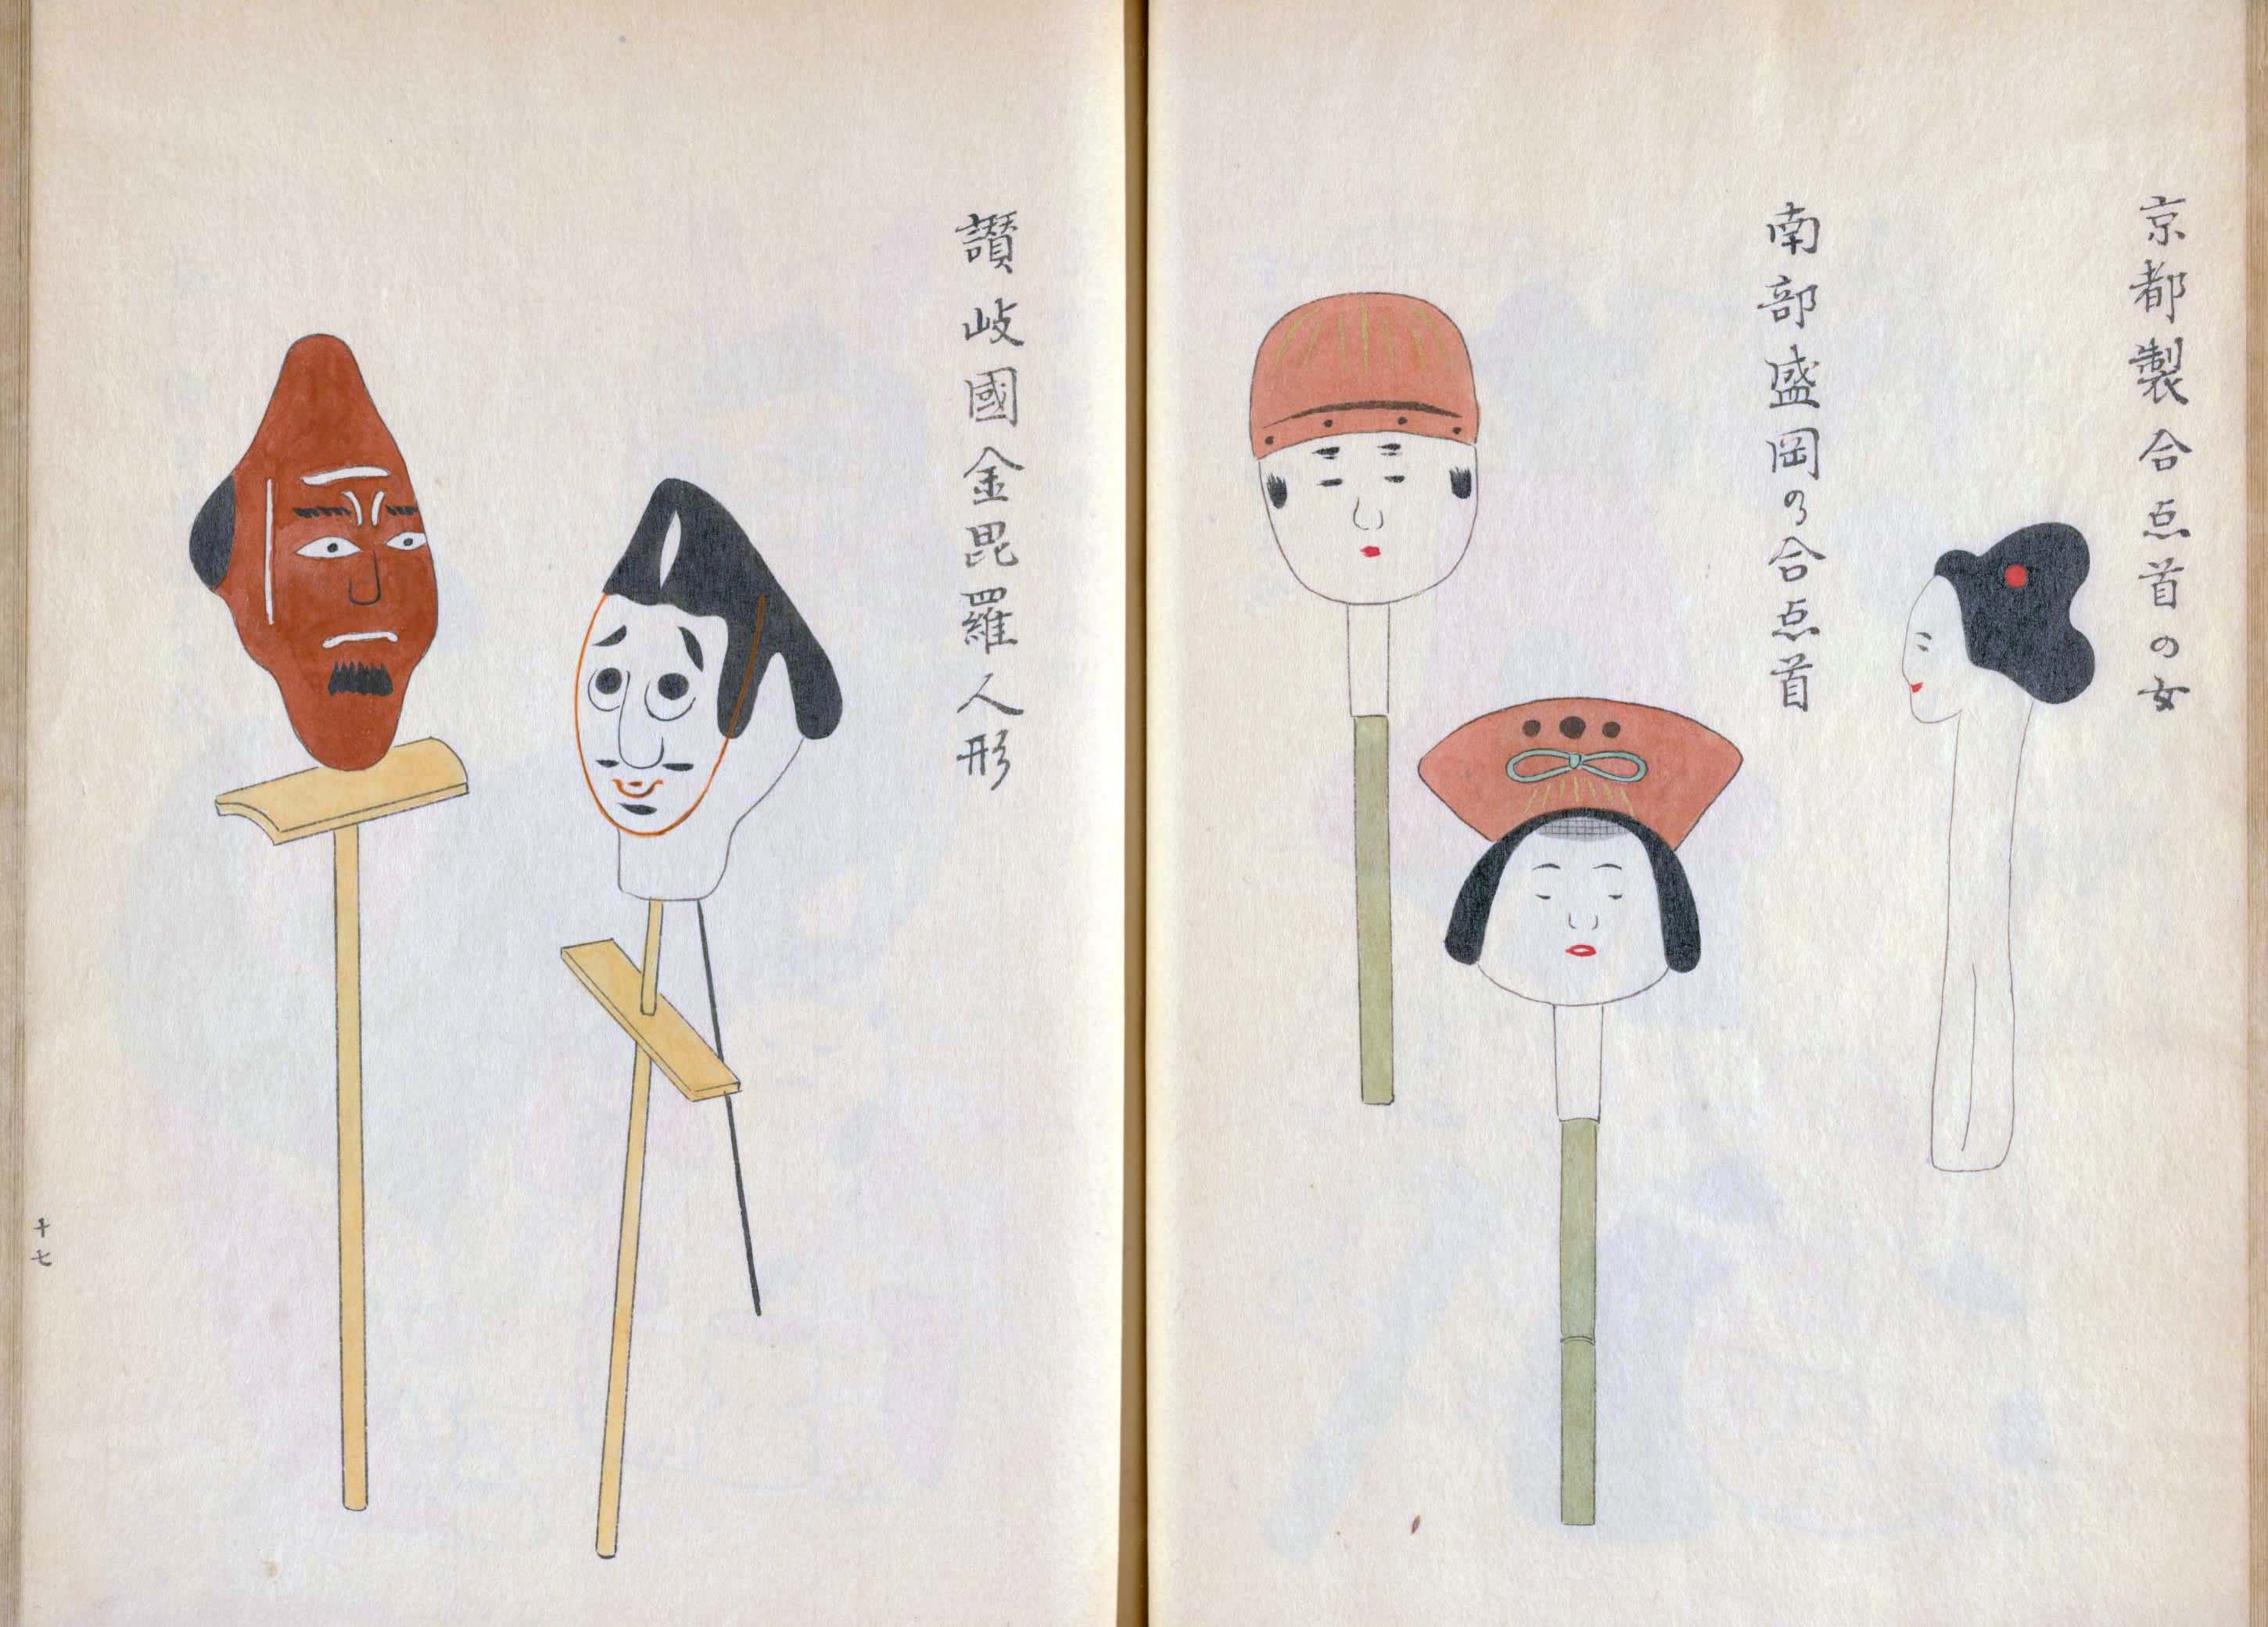 京都製合点首の女
南部盛岡の合点首
讃岐國金毘羅人形
十七